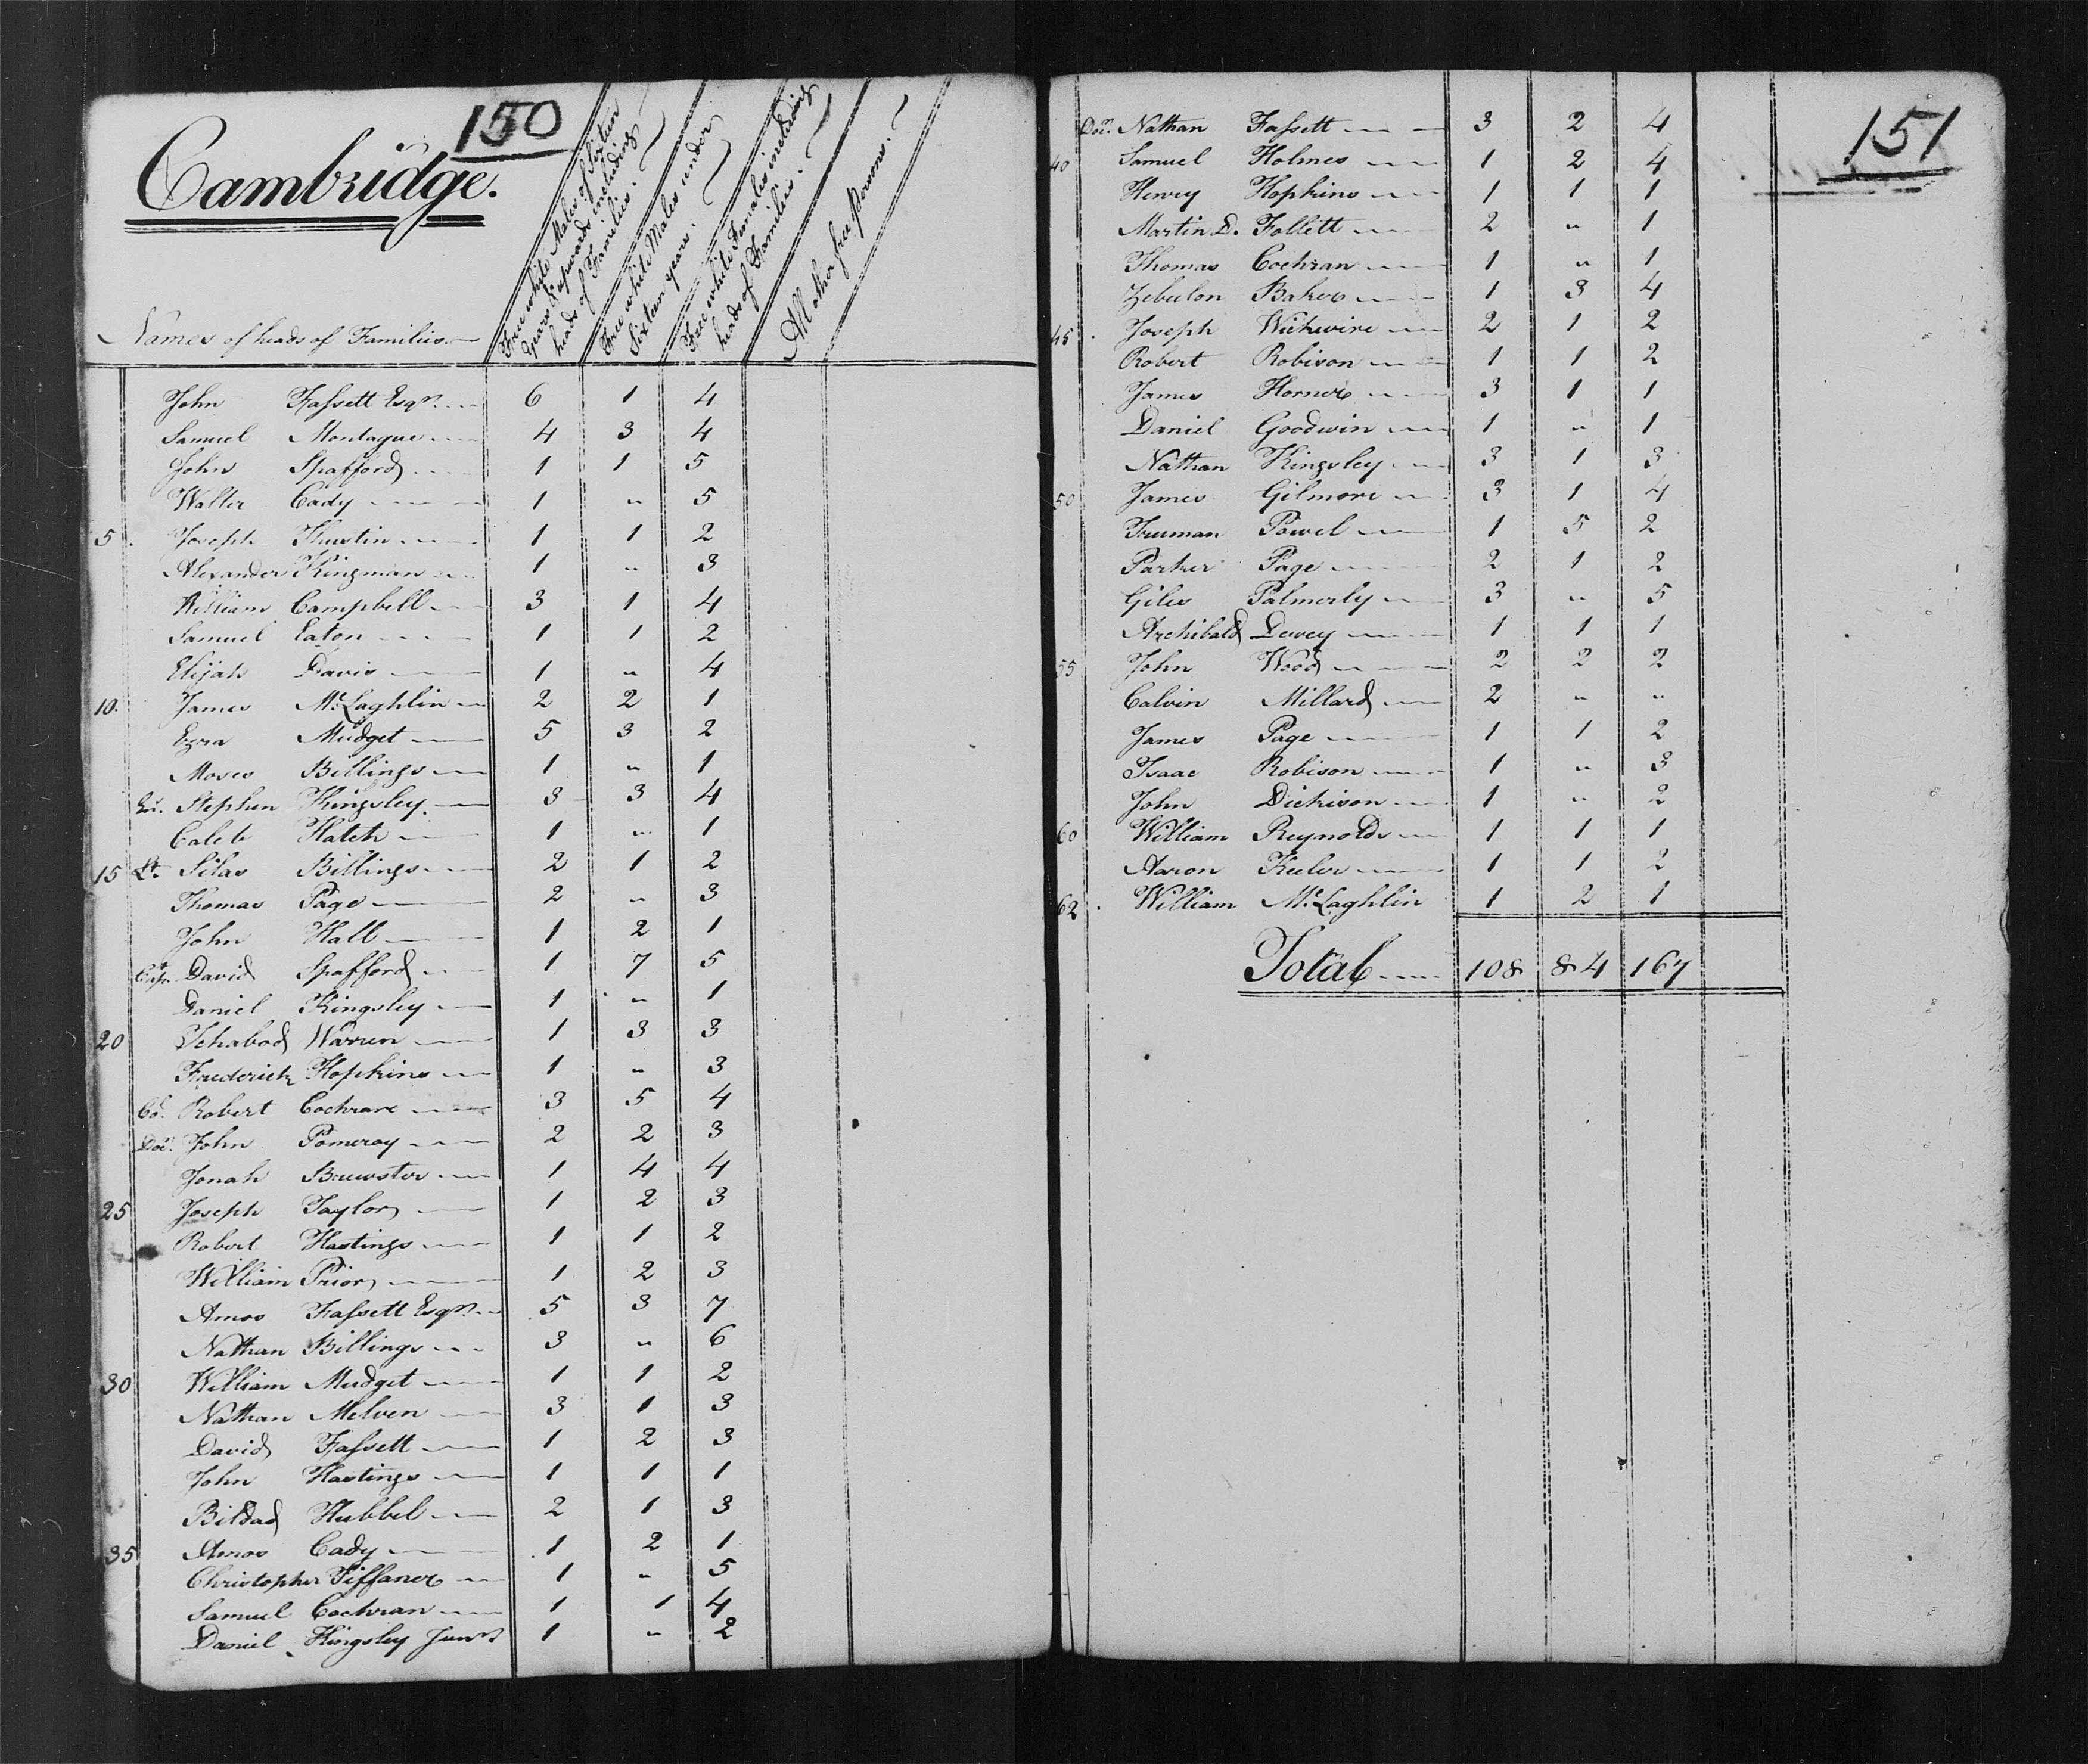 150
Cambridge.
Names of heads of Families.
Free white Males of Sixteen years & upwards including heads of Families.
Free white Males under Sixteen years.
Free white Females including heads of Families.
All other free persons.
John Fassett Esqr. 6 1 4
Samuel Montague 4 3 4
John Spafford 1 1 5
Walter Cady 1 " 5
5. Joseph 1 1 2
Alexander Kingman 1 " 3
William Campbell 3 1 4
Samuel Eaton 1 1 2
Elijah Davis 1 " 4
10. James McLaghlin 2 2 1
Ezra Mudget 5 3 2
Moses Billings 1 " 1
Stephen Kingsley. 3 3 4
Caleb Hatch 1 " 1
15 Lt. Silas Billings 2 1 2
Thomas Page 2 " 3
John Hall 1 2 1
Cap. David Spafford 1 7 5
Daniel Kingsley 1 " 1
20 Ichabod Warren 1 3 3
Frederick Hopkins 1 " 3
Co. Robert Cochrane 3 5 4
Doc. John Pomeroy 2 2 3
Jonah Brewster 1 4 4
25 Joseph Taylor 1 2 3
Robert Hastings 1 1 2
William Prior 1 2 3
Amos Fassett Esqr. 5 3 7
Nathan Billings 3 " 6
30 William Mudget 1 1 2
Nathan Melven 3 1 3
David Fassett 1 2 3
John Hastings 1 1 1
Bildad Hubbel 2 1 3
35 Amos Cady 1 2 1
Christopher Tiffaner 1 " 5
Samuel Cochran 1 1 4
Daniel Kingsley Junr. 1 " 2
151
Doc. Nathan Fassett 3 2 4
40 Samuel Holmes 1 2 4
Hervey Hopkins 1 1 1
Martin D. Follett 2 " 1
Thomas Cochran 1 " 1
Zebulon Baker 1 3 4
45. Joseph Wickwire 2 1 2
Robert Robison 1 1 2
James Horner 3 1 1
Daniel Goodwin 1 " 1
Nathan Kingsley 3 1 3
50 James Gilmore 3 1 4
Truman Powel 1 5 2
Parker Page 2 1 2
Giles Palmerly 3 " 5
Archibald Dewey 1 1 1
55 John Wood 2 2 2
Calvin Millard 2 " "
James Page 1 1 2
Isaac Robison 1 " 3
John Dickison 1 " 2
60 William Reynolds 1 1 1
Aaron Keeler 1 1 2
62. William McLaghlin 1 2 1
Total 108 84 167